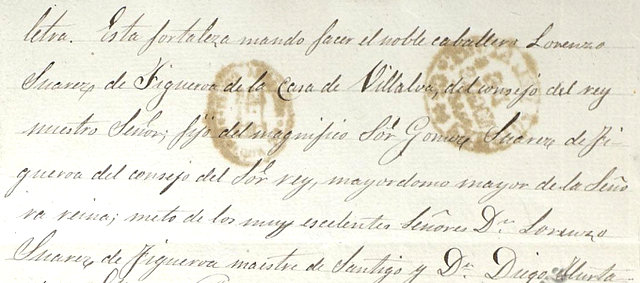 letra. Esta fortaleza mando facer el noble caballero Lorenzo
Suarez de Figueroa de la Casa de Villalva, del consejo del rey
nuestro Señor; fijo del magnifico Sor. Gomez Suarez de Fi-
gueroa del consejo del Sor. rey, mayordomo mayor de la Seño
ra reina; nieto de los muy escelentes Señores Dn. Lorenzo
Suarez de Figueroa maestre de Santigo y Dn. Diego Hurta-